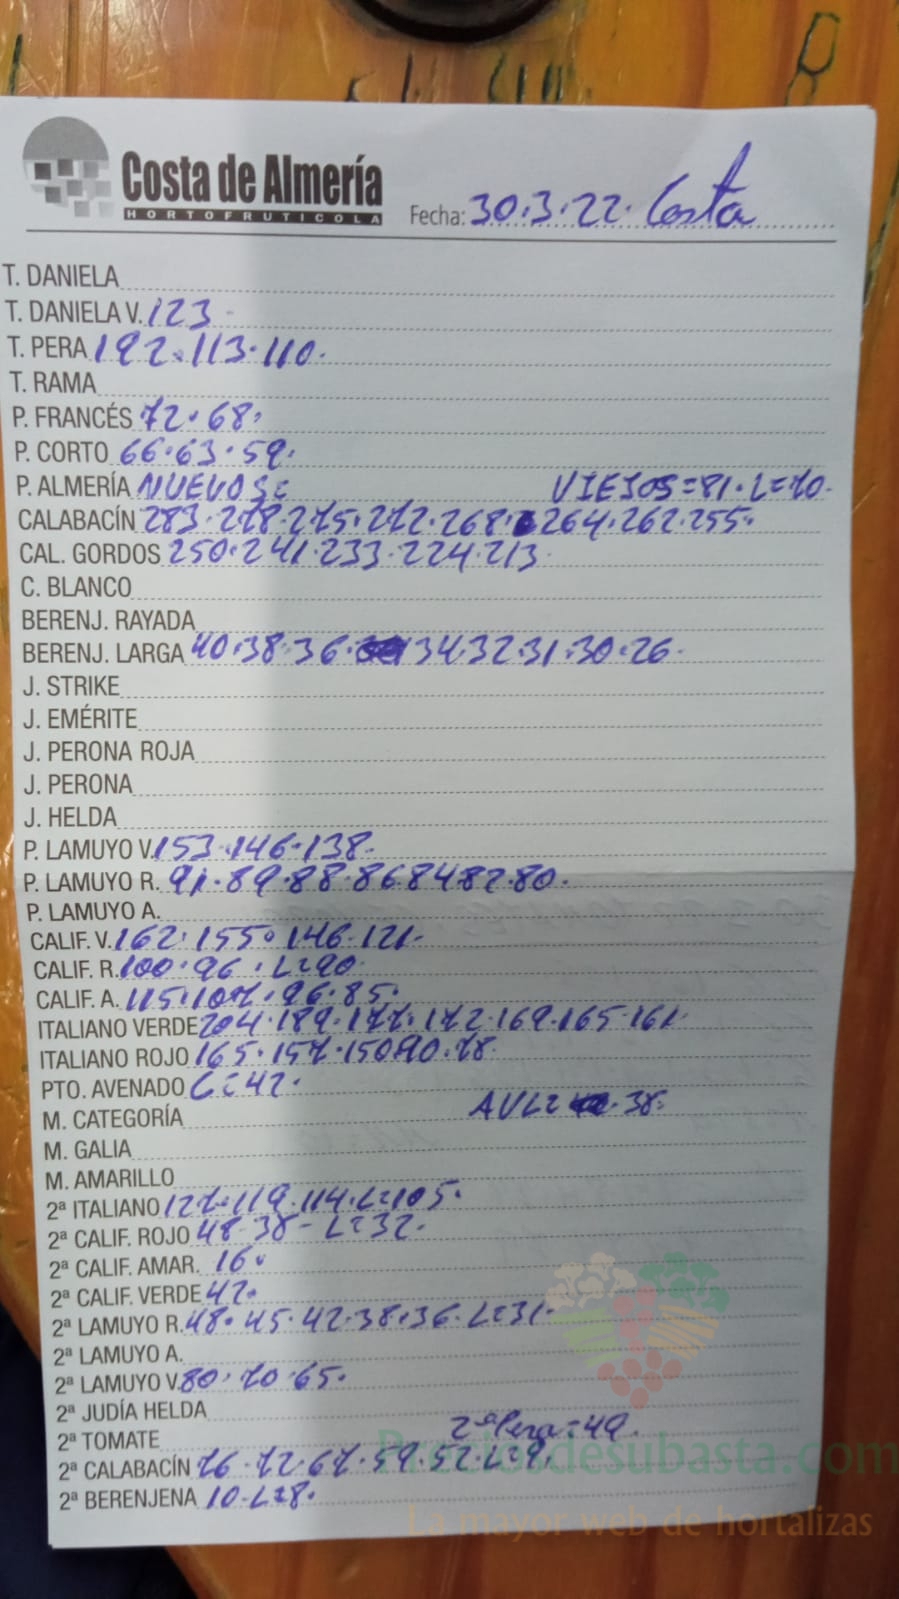 Costa de Almería
HORTOFRUTICOLA
Fecha: 30.3.22. Costa
T. DANIELA
T. DANIELA V. 123
T. PERA 192.113.110.
T. RAMA
P. FRANCÉS 72.68.
P. CORTO 66.63.59.
P. ALMERÍA NUEVOS= VIEJOS=81.L=70.
CALABACÍN 283.278.275.272.268.264.262.255.
CAL. GORDOS 250.241.233.224.213
C. BLANCO
BERENJ. RAYADA
BERENJ. LARGA 40.38.36.34.32.31.30.26.
J. STRIKE
J. EMÉRITE
J. PERONA ROJA
J. PERONA
J. HELDA
P. LAMUYO V. 153.146.138.
P. LAMUYO R. 91.89.88.86.84.82.80.
P. LAMUYO A.
CALIF. V. 162.155.146.121.
CALIF. R. 100.96.L=90
CALIF. A. 115.107.96.85.
ITALIANO VERDE 204.189.177.172.169.165.161
ITALIANO ROJO 165.157.150.90.78.
PTO. AVENADO L=42.
M. CATEGORÍA 38.
M. GALIA
M. AMARILLO
2ª ITALIANO 127.119.114.L=105.
2ª CALIF. ROJO 48 38 - L=32.
2ª CALIF. AMAR. 16.
2ª CALIF. VERDE 42.
2ª LAMUYO R. 48.45.42.38.36.L=31.
2ª LAMUYO A.
2ª LAMUYO V. 80.70.65.
2ª JUDÍA HELDA
2ª TOMATE 2ª Pera=49.
2ª CALABACÍN 76.72.67.59.52.
2ª BERENJENA 10.L=8.
Preciosdesubasta.com
La mayor web de hortalizas